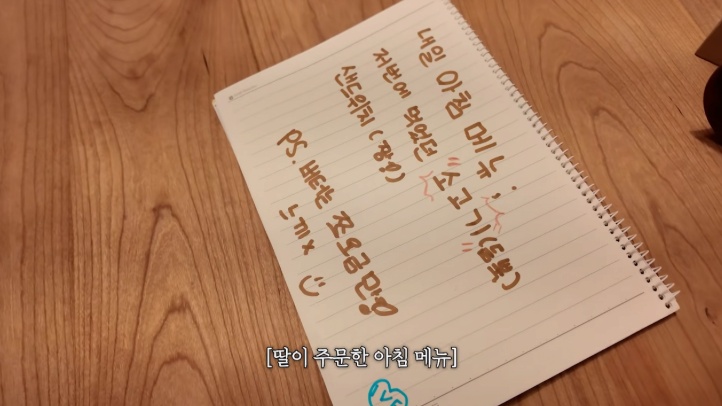 내일 아침 메뉴;
저번에 먹었던 "소고기(듬뿍)"
샌드위치 (짱!)
PS. 빼는 쪼오금만!
느끼x
[딸이 주문한 아침 메뉴]